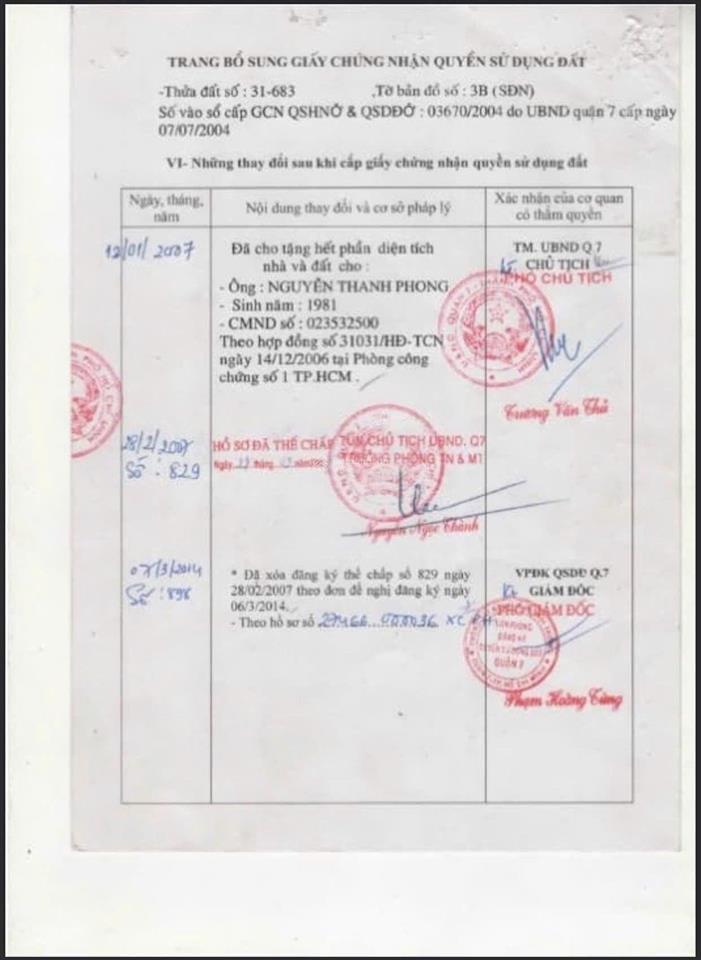 TRANG BỔ SUNG GIẤY CHỨNG NHẬN QUYỀN SỬ DỤNG ĐẤT
-Thửa đất số : 31-683 .Tờ bản đồ số : 3B (SĐN)
Số vào sổ cấp GCN QSHNỞ & QSDĐỞ : 03670/2004 do UBND quận 7 cấp ngày
07/07/2004
VI- Những thay đổi sau khi cấp giấy chứng nhận quyền sử dụng đất
Ngày, tháng,
năm
Nội dung thay đổi và cơ sở pháp lý
Xác nhận của cơ quan
có thẩm quyền
12/01/2007
Đã cho tặng hết phần diện tích
nhà và đất cho :
- Ông : NGUYỄN THANH PHONG
- Sinh năm : 1981
- CMND số : 023532500
Theo hợp đồng số 31031/HĐ-TCN
ngày 14/12/2006 tại Phòng công
chứng số 1 TP.HCM .
TM. UBND Q.7
CHỦ TỊCH
PHÓ CHỦ TỊCH
Trương Văn Thủ
28/2/2007
Số : 829
HỒ SƠ ĐÃ THẾ CHẤP
Ngày tháng năm
TUN CHỦ TỊCH UBND. Q7
TRƯỞNG PHÒNG TN & MT
Nguyễn Ngọc Thành
07/3/2014
Số : 898
* Đã xóa đăng ký thế chấp số 829 ngày
28/02/2007 theo đơn đề nghị đăng ký ngày
06/3/2014.
- Theo hồ sơ số
VPĐK QSDĐ Q.7
GIÁM ĐỐC
PHÓ GIÁM ĐỐC
VĂN PHÒNG
ĐĂNG KÝ
QUYỀN SỬ DỤNG ĐẤT
QUẬN 7
Phạm Hoàng Tùng